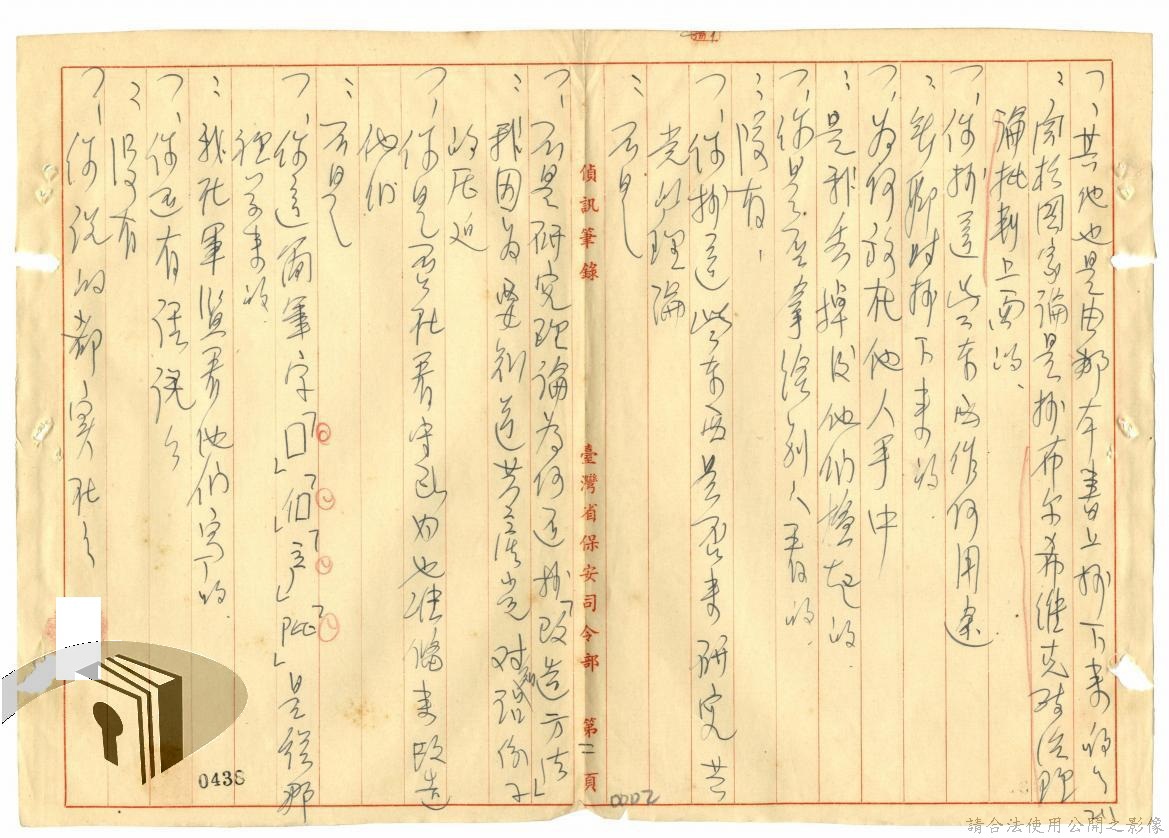 問：其他也是由那本書上抄下來的？
答：關於國家論是抄布尔希維克政治理
論批判上面的、
問：你抄這些東西作何用途
答：無聊時抄下來的
問：為何放在他人軍中
答：是我丟掉後他們撿起的
問：你是否拿給別人看的
答：沒有、
問：你抄這些東西是否來研究共
党的理論
答：不是
偵訊筆錄　臺灣省保安司令部　第二頁
問：不是研究理論為何还抄「改造方法」
答：我因為要知道共產党对知識份子
的压迫
問：你是否在看守所内也准備來改造
他們
答：不是
問：你這簡筆字「口」「伯」「产」是從那
裡学來的
答：我在軍監看他們寫的
問：你还有話説？
答：没有
問：你説的都实在？
0002
請合法使用公開之影像